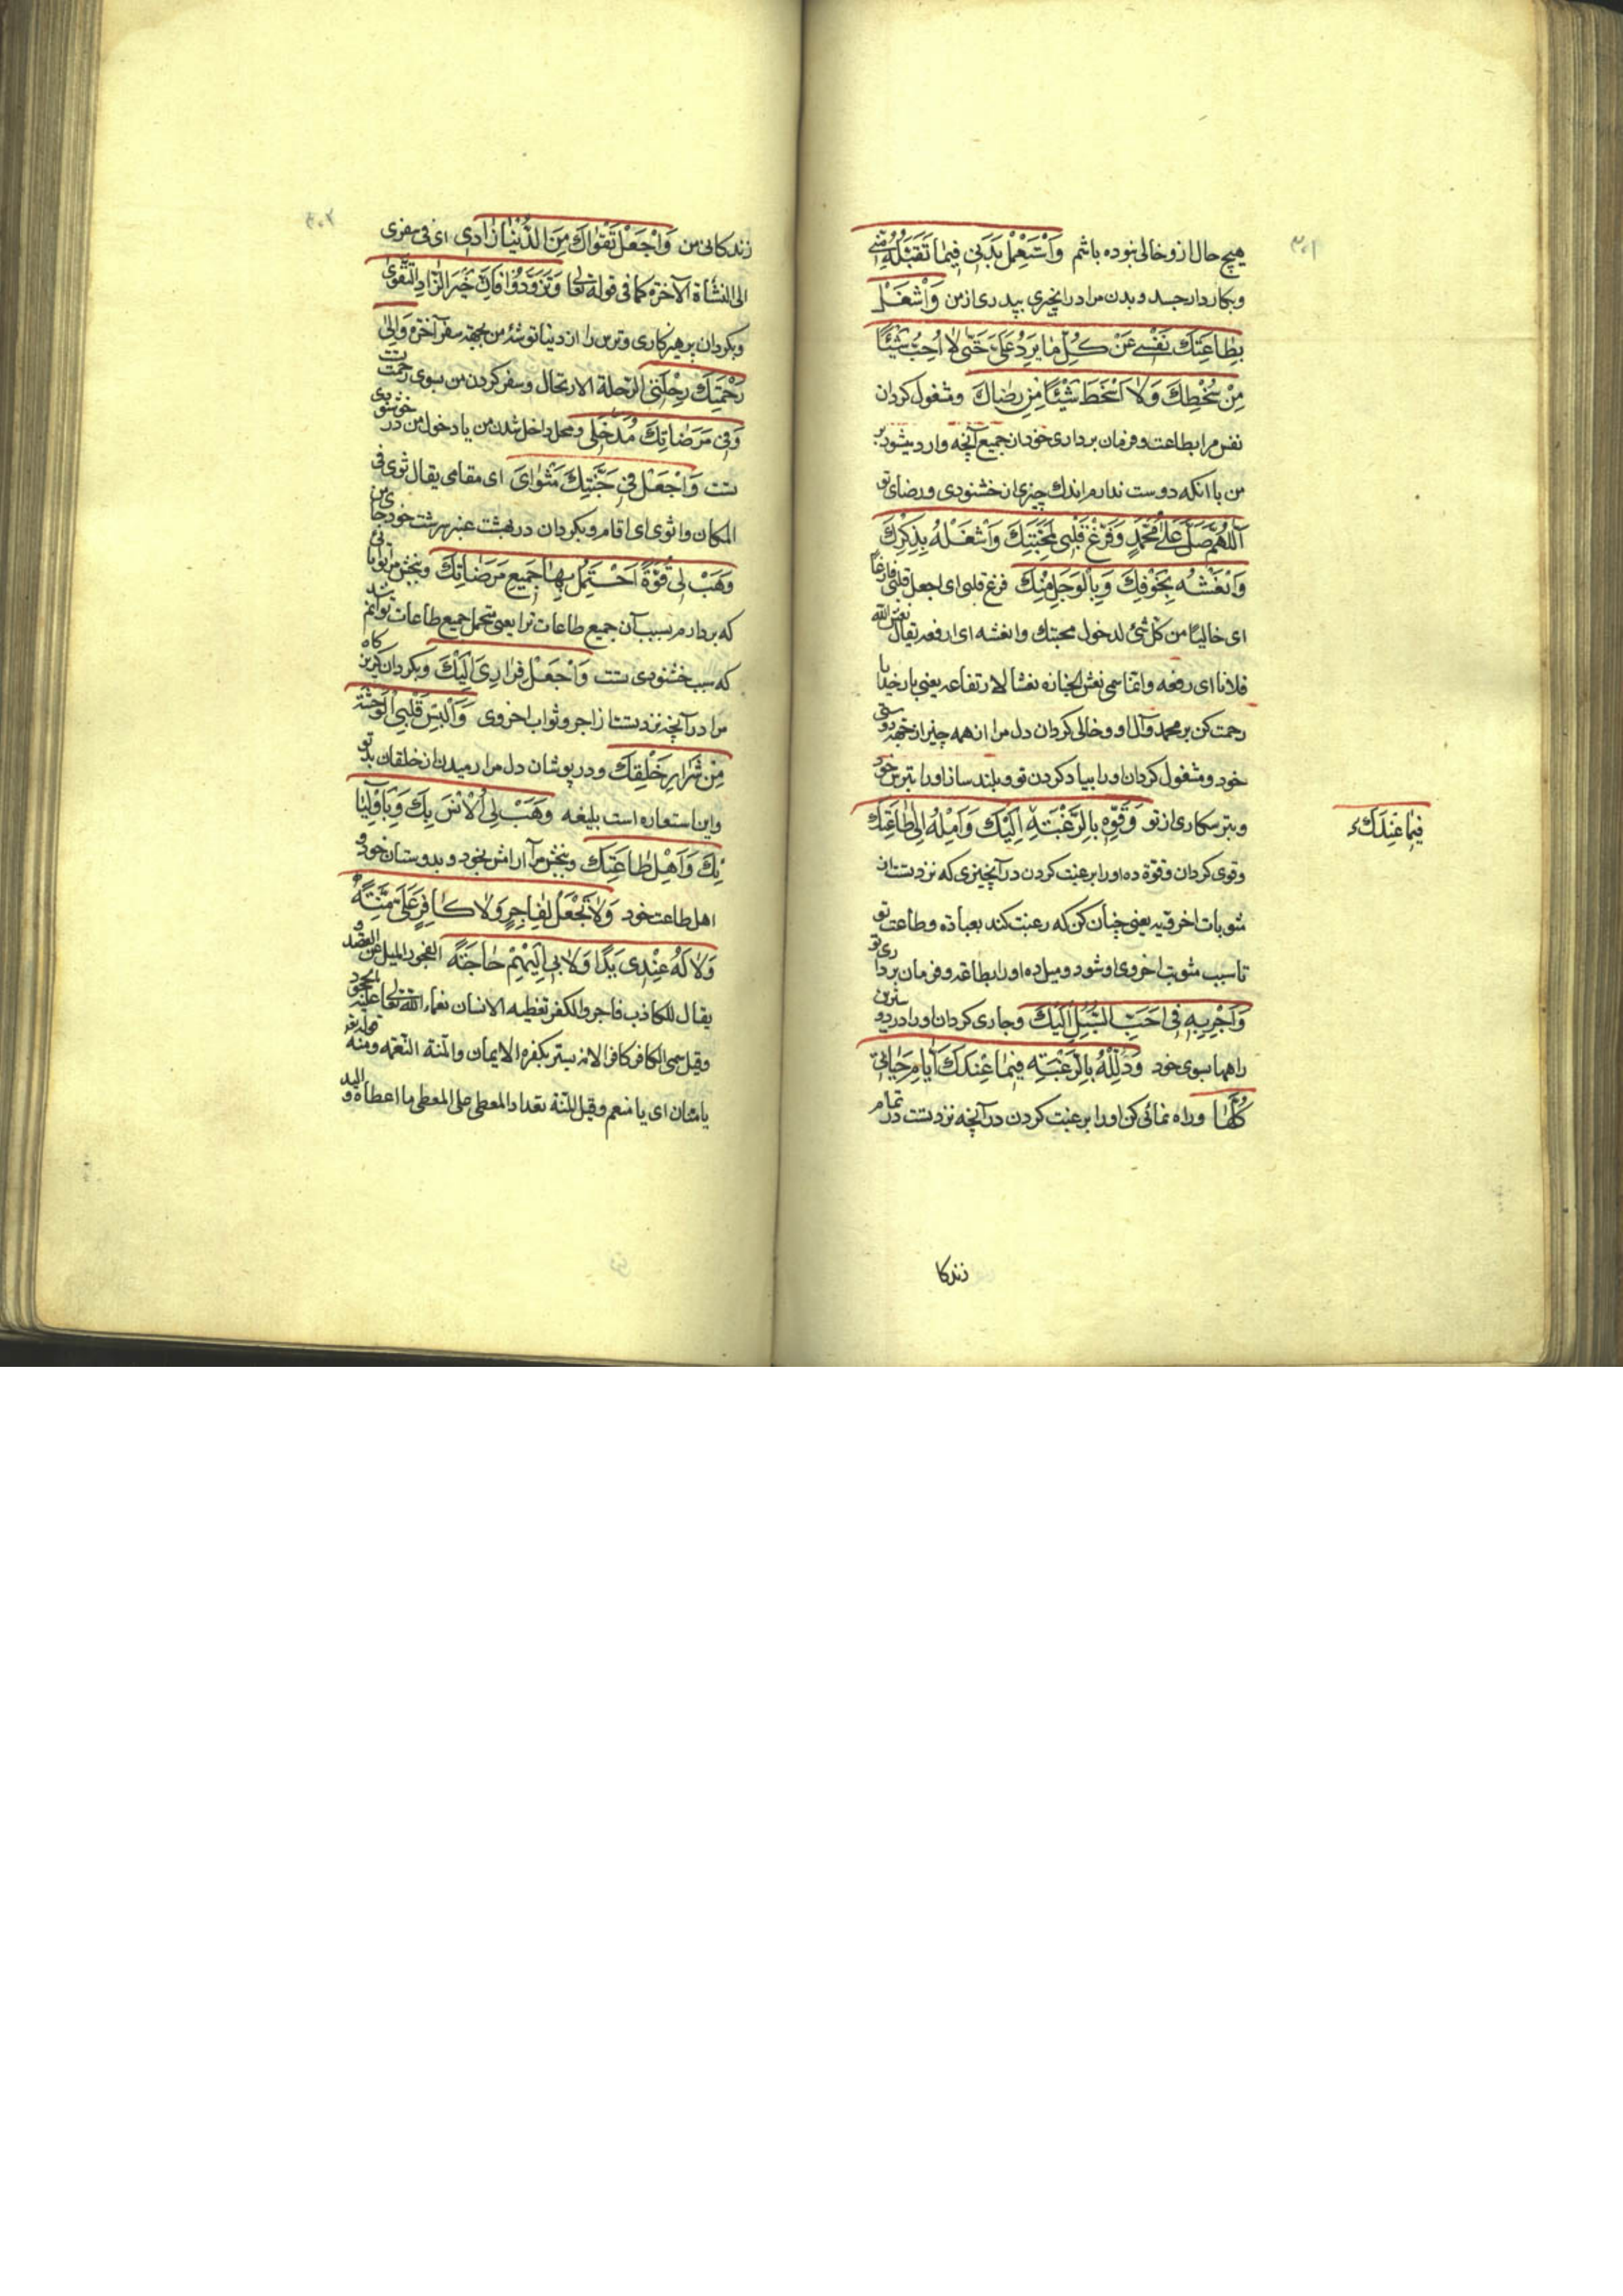 ۳۰۱
هیچ حال ازو خالی نبوده باشم وَاسْتَعْمِلْ بَدَنِی فِیمَا تَقْبَلُهُ مِنِّی
و بکار دار جسد و بدن مرا در انچیزی بپذیری از من وَاشْغَلْ
بِطَاعَتِكَ نَفْسِی عَنْ كُلِّ مَا یَرِدُ عَلَیَّ حَتّٰی لَا اُحِبَّ شَیْئًا
مِنْ سُخْطِكَ وَلَا اَسْخَطَ شَیْئًا مِنْ رِضَاكَ و مشغول کردان
نفس مرا بطاعت و فرمان برداری خود از جمیع آنچه وارد میشود بر
من با انکه دوست ندارم اندك چیزی از خشنودی و رضای تو
اَللّٰهُمَّ صَلِّ عَلٰی مُحَمَّدٍ وَفَرِّغْ قَلْبِی لِمَحَبَّتِكَ وَاشْغَلْهُ بِذِكْرِكَ
وَانْعَشْهُ بِخَوْفِكَ وَبِالْوَجَلِ مِنْكَ فرغ قلبی ای اجعل قلبی فارغاً
ای خالیًا من کل شئ لدخول محبتك وانعشه ای ارفعه یقال نعش الله
فلانا ای رفعه وانما سمی نعش الجنازه نعشا لارتفاعه یعنی بارخدایا
رحمت کن بر محمد و آل او و خالی کردان دل مرا از همه چیز از جهة دوستی
خود و مشغول کردان او را بیاد کردن تو و بلند ساز او را بترس خود
و بترسکاری از تو وَقَوِّهِ بِالرَّغْبَةِ اِلَیْكَ وَاَمِلْهُ اِلٰی طَاعَتِكَ
و قوی کردان و قوة ده او را برغبت کردن در آنچیزی که نزد تست از
مثوبات اخرویه یعنی چنان کن که رغبت کند بعبادة و طاعت تو
تا سبب مثوبت اخروی او شود و میل ده او را بطاعة و فرمان برداری تو
وَاَجْرِ بِهِ فِی اَحَبِّ السُّبُلِ اِلَیْكَ و جاری کردان او را در دوسترین
راهها بسوی خود وَذَلِّلْهُ بِالرَّغْبَةِ فِیمَا عِنْدَكَ اَیَّامَ حَیَاتِی
كُلِّهَا و راه نمائی کن او را برغبت کردن در آنچه نزد تست در تمام
زندکا
فِیمَا عِنْدَكَ
زندکانی من وَاجْعَلْ تَقْوَاكَ مِنَ الدُّنْیَا زَادِی ای فی سفری
الی النشأة الآخرة کما فی قوله تعالی وَتَزَوَّدُوا فَاِنَّ خَیْرَ الزَّادِ التَّقْوٰی
و بکردان پرهیزکاری و ترس را از دنیا توشۀ من بجهة سفر آخرة وَاِلٰی
رَحْمَتِكَ رِحْلَتِی الرحلة الارتحال و سفر کردن من بسوی رحمت تست
وَفِی مَرْضَاتِكَ مُدْخَلِی و محل داخل شدن من یا دخول من در خوشنودی
تست وَاجْعَلْ فِی جَنَّتِكَ مَثْوَایَ ای مقامی یقال ثوی فی
المکان واثوی ای اقام و بکردان در بهشت عنبر سرشت خود جای من
وَهَبْ لِی قُوَّةً اَحْتَمِلُ بِهَا جَمِیعَ مَرْضَاتِكَ و ببخش مرا توانائی
که بردارم بسبب آن جمیع طاعات ترا یعنی متحمل جمیع طاعات توانم شد
که سبب خشنودی تست وَاجْعَلْ فِرَارِی اِلَیْكَ و بکردان کریزکاه
مرا در آنچه نزد تست از اجر و ثواب اخروی وَاَلْبِسْ قَلْبِی الْوَحْشَةَ
مِنْ شِرَارِ خَلْقِكَ و در پوشان دل مرا رمیدن از خلقان بد تو
و این استعاره است بلیغه وَهَبْ لِی الْاُنْسَ بِكَ وَبِاَوْلِیَا
ئِكَ وَاَهْلِ طَاعَتِكَ و ببخش مرا آرامش بخود و بدوستان خود و
اهل طاعت خود وَلَا تَجْعَلْ لِفَاجِرٍ وَلَا كَافِرٍ عَلَیَّ مِنَّةً
وَلَا لَهُ عِنْدِی یَدًا وَلَا بِی اِلَیْهِمْ حَاجَةً الفجور المیل عن القصد و
یقال للکاذب فاجر والکفر تغطیه الانسان نعماء الله تعالی علیه بالجحود
وقیل سمی الکافر کافرا لانه یستر بکفره الایمان والمنة النعمة ومنه قوله
یا منان ای یا منعم وقیل المنة تعداد المعطی علی المعطی ما اعطاه والید